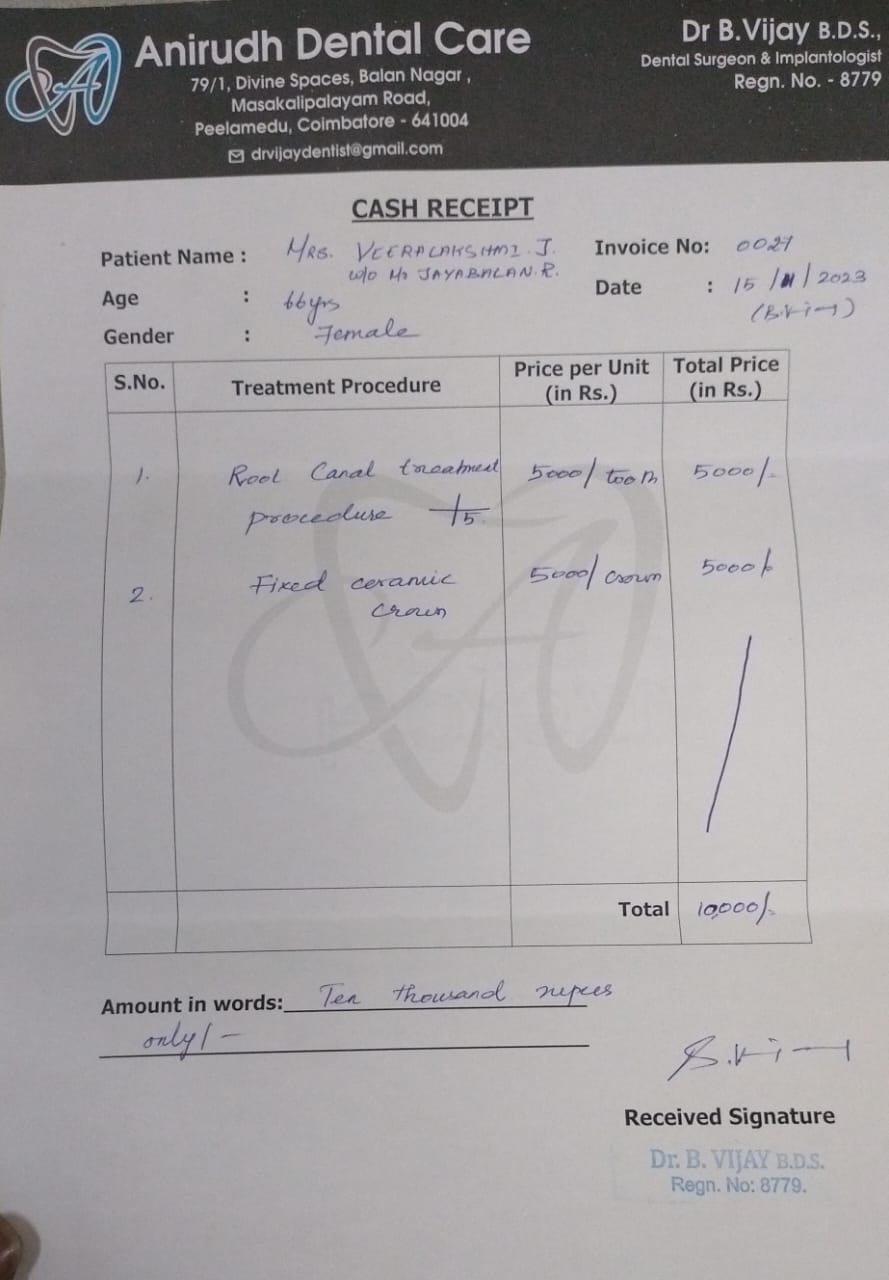 Anirudh Dental Care
79/1, Divine Spaces, Balan Nagar,
Masakalipalayam Road,
Peelamedu, Coimbatore - 641004
drvijaydentist@gmail.com
Dr B.Vijay B.D.S.,
Dental Surgeon & Implantologist
Regn. No. - 8779
CASH RECEIPT
Patient Name : MRS. VEERALAKSHMI. J.
W/O Mr JAYABALAN.R.
Invoice No: 0027
Age : 66yrs
Date : 15/11/2023
Gender : Female
S.No. Treatment Procedure Price per Unit (in Rs.) Total Price (in Rs.)
1. Root Canal treatment 5000/tooth 5000/-
procedure 5
2. Fixed ceramic 5000/crown 5000/-
crown
Total 10,000/-
Amount in words: Ten thousand rupees
only/-
Received Signature
Dr. B. VIJAY B.D.S.
Regn. No: 8779.